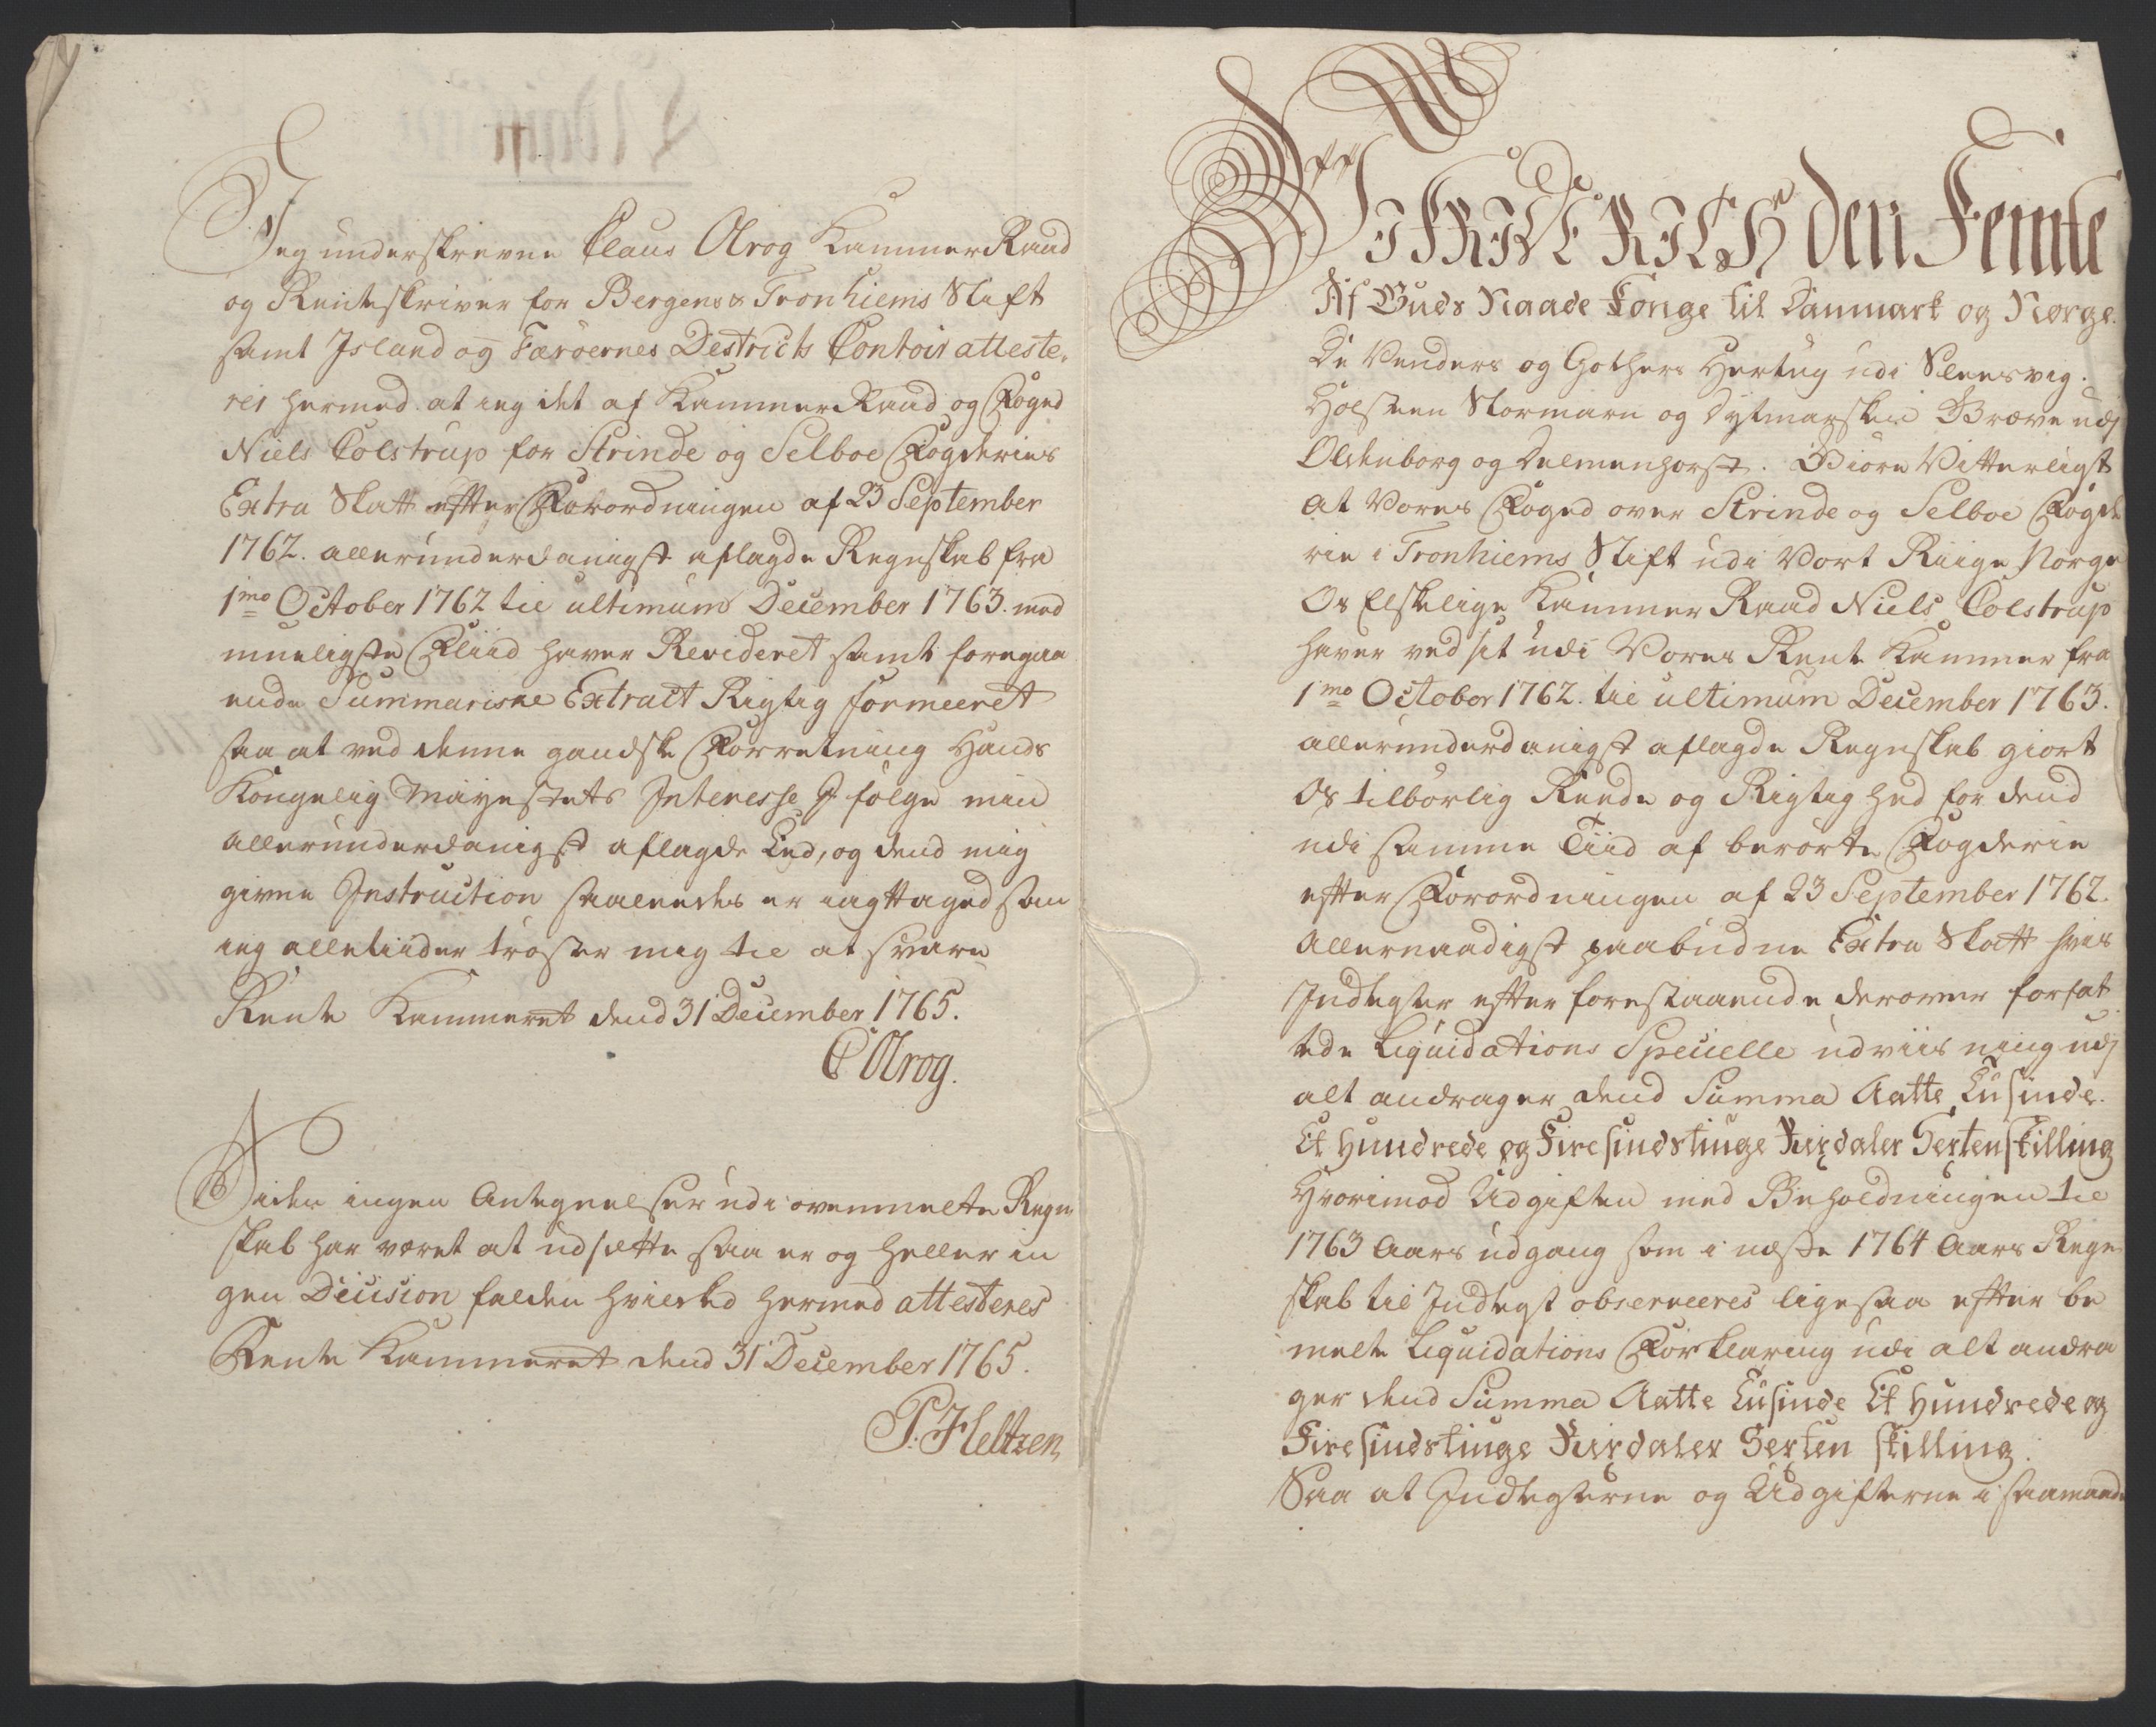 Jeg underskrevne Claus Olrog Kammer Raad
og Renteskriver for Bergens & Tronhiems Stift
samt Island og Færøernes Destrichs Contoir atteste„
rer hermed at ieg det af Kammer Raad og Foged
Niels Colstrup for Strinde og Selboe Fogderies
Extra Skatt efter Forordningen af 23 September
1762. allerunderdanigst aflagde Regnskab fra
1mo October 1762 til ultimum December 1763. med
mueligste Fliid haver Revideret samt foregaa
ende Summariske Extract Rigtig formeeret
saa at ved denne gandske Forretning Hands
Kongelig Mayestets Interesse J følge min
allerunderdanigst aflagde Eed, og dend mig
given Instruction saaledes er iagttaged som
ieg alletiider trøster mig til at svare
Rente Kammeret dend 31 December 1765.
C Olrog.
Siden ingen Antegnelser udi ovenmelte Regn
skab har været at udsætte saa er og heller in
gen Decision falden hvilked hermed attesteres
Rente Kammeret dend 31 December 1765.
P. Heltzen
Vi FRIDERICH den Femte
Af Guds Naade Konge til Danmark og Norge.
De Venders og Gothers Hertug udi Sleesvig.
Holsteen Stormarn og Dytmarsken Greve udj
Oldenborg og Delmenhorst. Giøre Vitterligt
at Vores Foged over Strinde og Selboe Fogde
rie i Tronhiems Stift udi Vort Riige Norge
Os Elskelige Kammer Raad Niels Colstrup
haver ved sit udi Vores Rente Kammer fra
1mo October 1762. til ultimum December 1763.
allerunderdanigst aflagde Regnskab giort
Os tilbørlig Reede og Rigtighed for dend
udi samme Tiid af berørte Fogderie
efter Forordningen af 23 September 1762.
Allernaadigst paabudne Extra Skatt hvis
Indtegter efter forestaaende derover forfat
tede Liquidations Specielle udviisning udj
alt andrager dend Summa Aatte Tusinde.
Et Hundrede og Firesindstiuge Rixdaler Sexten skilling
Hvorimod Udgiften med Beholdningen til
1763 Aars udgang som i næste 1764 Aars Regn
skab til Indtegt observeeres ligesaa efter be
melte Liquidations Forklaring udi alt andra
ger dend Summa Aatte Tusinde Et Hundrede og
Firesindstiuge Rixdaler Sexten skilling.
Saa at Indtegterne og Udgifterne i saamaade